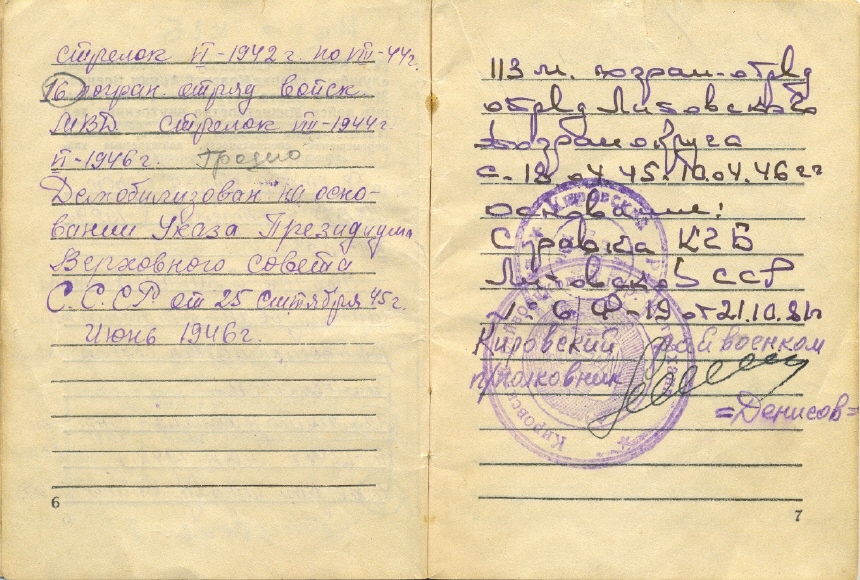 стрелок VI-1942г. по VIII-44г.
16 погран. отряд войск
МВД стрелок VIII-1944г.
VI-1946г. Гродно
Демобилизован на осно-
вании Указа Президиума
Верховного совета
С.С.С.Р от 25 сентября 45г.
Июнь 1946г.
6
113 м. погран-отряд
отряд Литовского
погранокруга
с. 18.04.45. 10.04.46гг
основание:
Справка КГБ
Литовской ССР
6 Ф-19 от 21.10.81г
Кировский райвоенком
п/полковник
=Денисов=
7